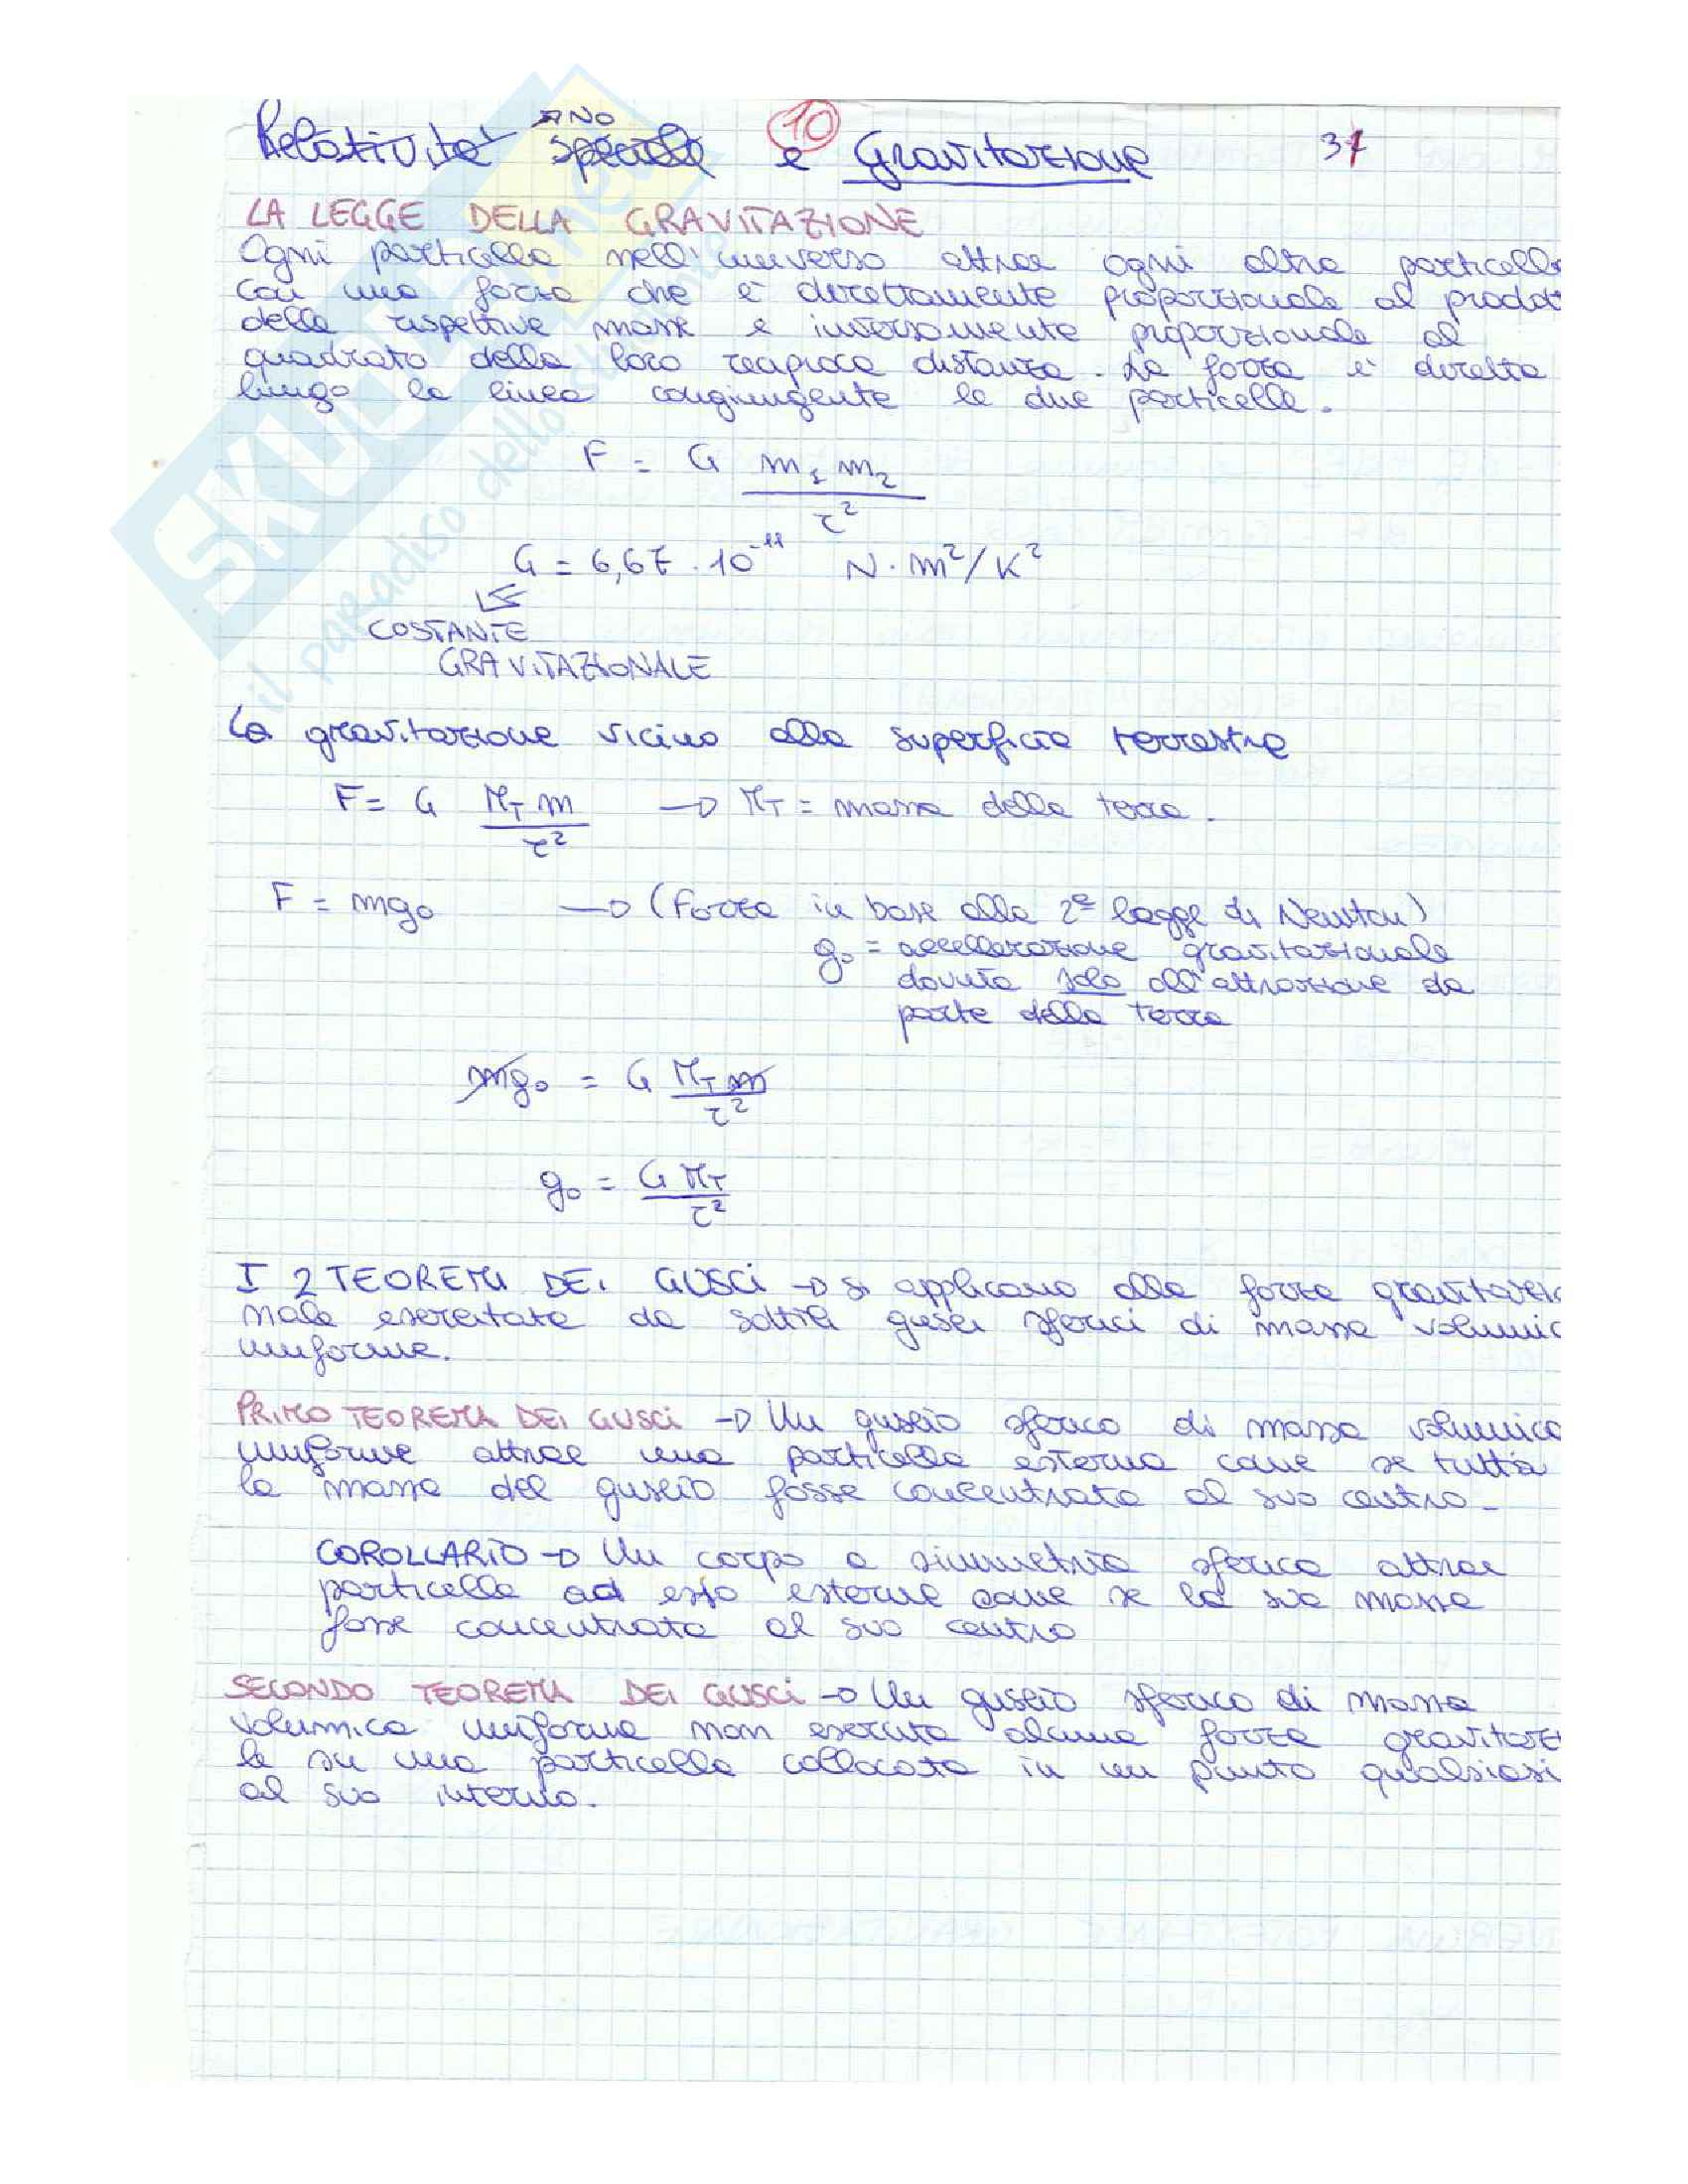 →NO
Relatività speciale e Gravitazione
10
37
LA LEGGE DELLA GRAVITAZIONE
Ogni particella nell'universo attrae ogni altra particell
con una forza che è direttamente proporzionale al prodot
delle rispettive masse e inversamente proporzionale al
quadrato della loro reciproca distanza. La forza è diretta
lungo la linea congiungente le due particelle.
F = G m₁ m₂ / r²
G = 6,67 · 10⁻¹¹ N · m²/K²
COSTANTE
GRAVITAZIONALE
La gravitazione vicino alla superficie terrestre
F = G M_T m / r² → M_T = massa della terra.
F = mg₀ → (Forza in base alla 2ª legge di Newton)
g₀ = accellerazione gravitazionale
dovuta solo all'attrazione da
parte della terra
mg₀ = G M_T m / r²
g₀ = G M_T / r²
I 2 TEOREMI DEI GUSCI → si applicano alla forza gravitazio
nale esercitata da sottili gusci sferici di massa volumic
uniforme.
PRIMO TEOREMA DEI GUSCI → Un guscio sferico di massa volumica
uniforme attrae una particella esterna come se tutta
la massa del guscio fosse concentrata al suo centro.
COROLLARIO → Un corpo a simmetria sferica attrae
particelle ad esso esterne come se la sua massa
fosse concentrata al suo centro
SECONDO TEOREMA DEI GUSCI → Un guscio sferico di massa
volumica uniforme non esercita alcuna forza gravitaz
le su una particella collocata in un punto qualsiasi
al suo interno.
SKUOLA.net
il paradiso dello studente